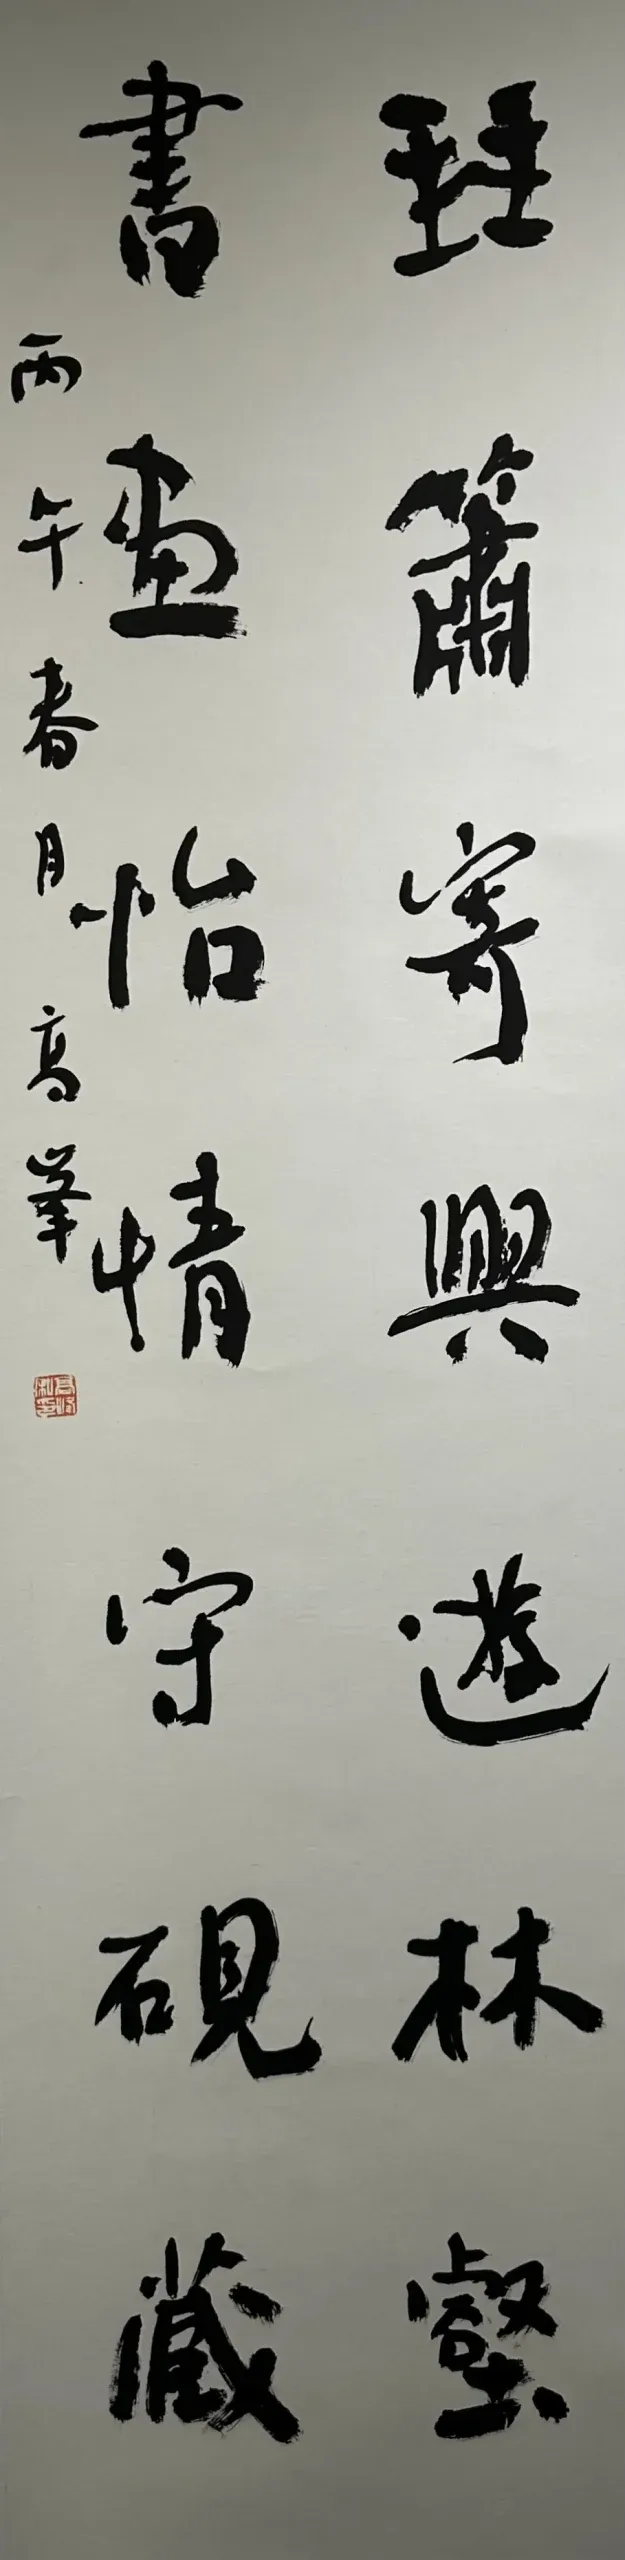 琴簫寄興遊林壑
書畫怡情守硯藏
丙午春月高峯
高峰私印